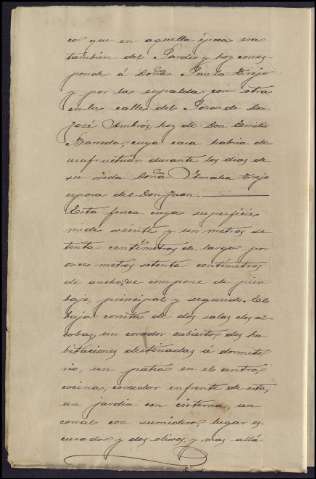 cor que en aquella época era
tambien del Pardo y hoy corres
ponde á Doña Paula Trejo
y por las espaldas con otra
en la calle del Pozo de Don
José Ambros hoy de Don Emilio
Barreda, cuya casa habia de
usufructuar durante los dias de
su vida Doña Amalia Trejo
esposa del Don Juan.
Esta finca cuya superficie
mide veinte y un metros se
tenta centímetros de largo por
once metros setenta centímetros
de ancho, se compone de piso
bajo, principal y segundo. El
bajo consta de dos salas, dos al
cobas, un corredor cubierto, dos ha
bitaciones destinadas á dormito
rio, un patio en el centro,
cocina, comedor enfrente de esta,
un jardin con cisterna, un
corral con sumidero, lugar es
cusado y dos olivos, y mas allá